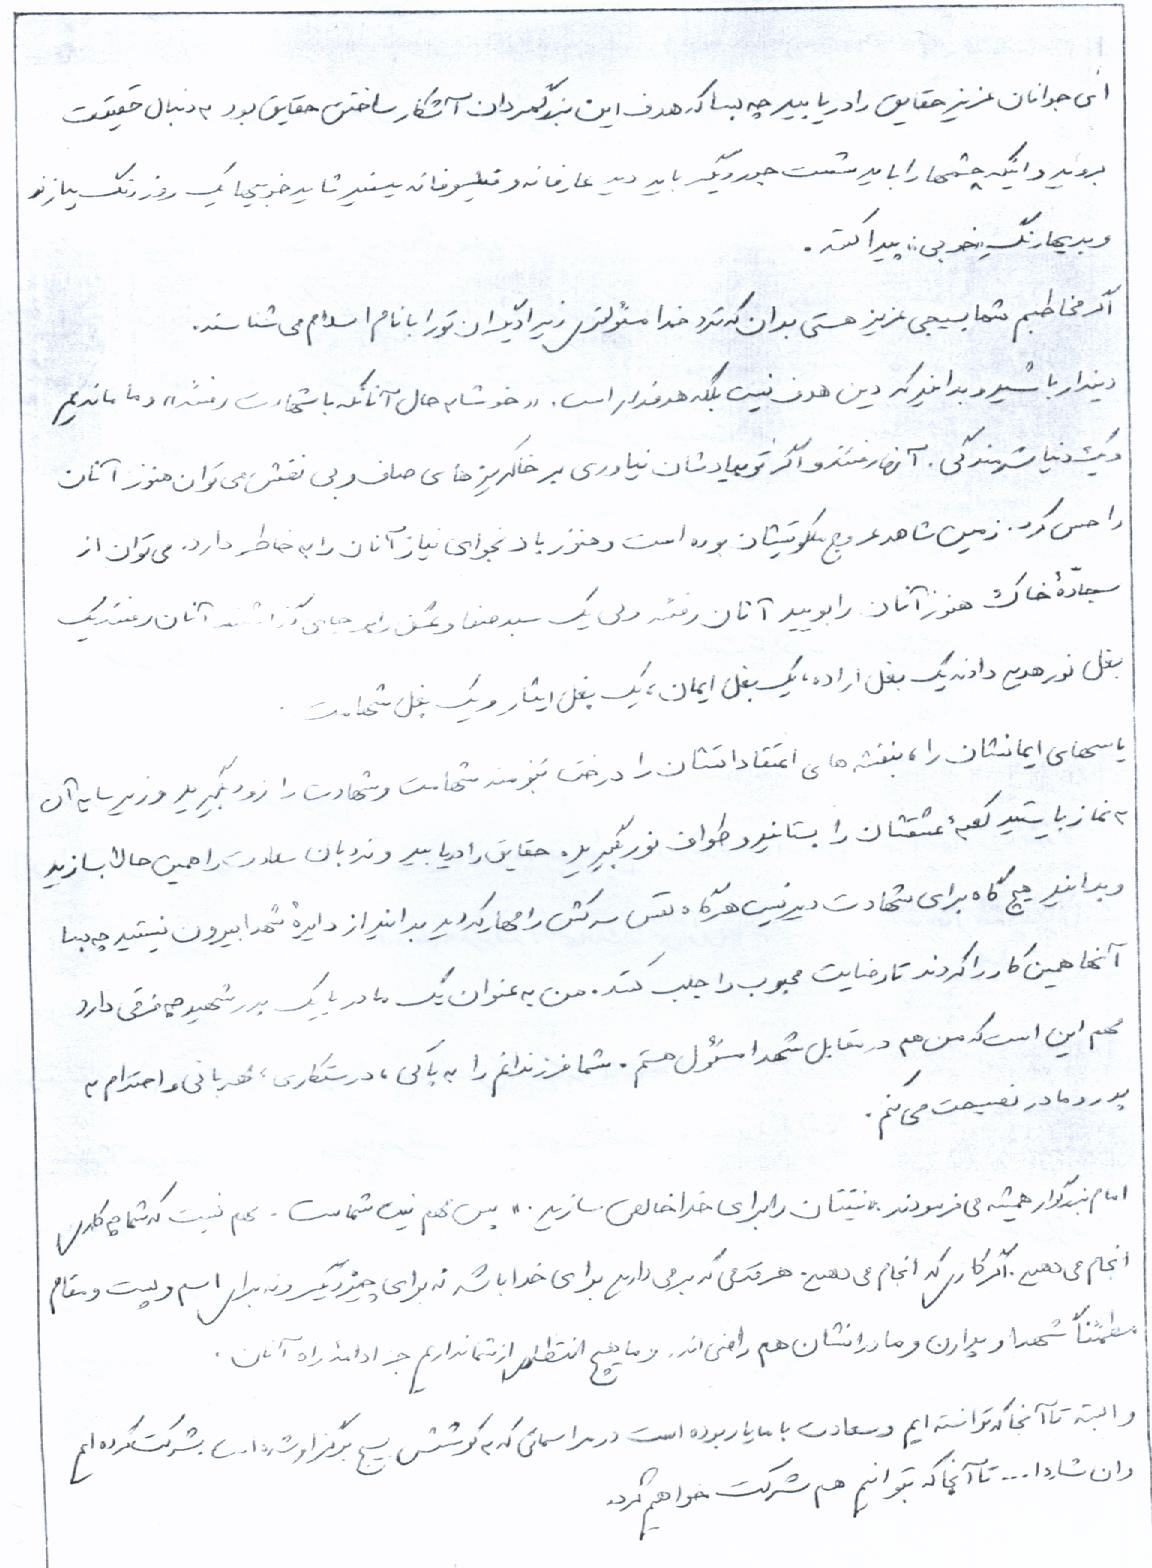 ای جوانان عزیز حقایق را دریابید چه بسا که هدف این بزرگمردان آشکار ساختن حقایق بود به دنبال حقیقت
بروید و اینکه چشمها را باید شست جور دیگر باید دید عارفانه و فیلسوفانه ببینید شاید خوبیها یک روز رنگ
و بدیها رنگ «خوبی» پیدا کنند.
اگر مخاطبم شما بسیجی عزیز هستی بدان که نزد خدا مسئولتری زیرا دیگران تو را با نام اسلام می شناسند.
دیندار باشید و بدانید که دین هدف نیست بلکه هدفدار است. «خوشا به حال آنانکه با شهادت رفتند» و ما ماندیم
و یک دنیا شرمندگی. آنها رفتند و اگر تو بیادشان نیاوری بر خاکریزهای صاف و بی نقش می توان هنوز آنان
را حس کرد. زمین شاهد عروج ملکوتیشان بوده است و هنوز باد نجوای نیاز آنان را به خاطر دارد. می توان از
سجّادهٔ خاک هنوز آنان را بویید آنان رفتند ولی یک سبد صفا و عشق را بر جای گذاشتند آنان رفتند یک
بغل نور هدیه دادند یک بغل اراده، یک بغل ایمان، یک بغل ایثار و یک بغل شهامت.
یاسهای ایمانشان را، بنفشه های اعتقاداتشان را درخت تنومند شهامت و شهادت را زود بگیرید و زیر سایه آن
به نماز بایستید کعبهٔ عشقشان را بستانید و طواف نور بگیرید. حقایق را دریابید و نردبان سعادت را همین حالا بسازید
و بدانید هیچ گاه برای شهادت دیر نیست هرگاه نفس سرکش را مهار کردید بدانید از دایرهٔ شهدا بیرون نیستید چه بسا
آنها همین کار را کردند تا رضایت محبوب را جلب کنند. من به عنوان یک مادر یا یک پدر شهید چه فرقی دارد
مهم این است که من هم در مقابل شهدا مسئول هستم. شما فرزندانم را به پاکی، درستکاری، مهربانی و احترام به
پدر و مادر نصیحت می کنم.
امام بزرگوار همیشه می فرمودند «نیتتان را برای خدا خالص سازید.» پس مهم نیت شماست. مهم نیست که شما چه کاری
انجام می دهید. اگر کاری که انجام می دهید. هر قدمی که بر می دارید برای خدا باشد نه برای چیز دیگر و نه برای اسم و پست و مقام
مطمئناً شهدا و پدران و مادرانشان هم راضی اند. و ما هیچ انتظاری از شما نداریم جز ادامهٔ راه آنان.
و البته تا آنجا که توانسته ایم و سعادت با ما یار بوده است در مراسماتی که به کوشش بسیج برگزار شده است شرکت کرده ایم
و ان شاءا... تا آنجا که بتوانیم هم شرکت خواهیم کرد.